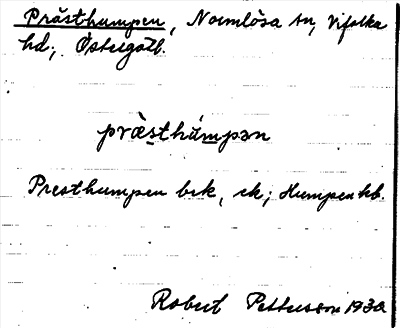 Prästhumpen, Normlösa sn, Vifolka
hd; Östergötl.
præsthámpən
Presthumpen bsk, ek; Humpen kb.
Robert Pettersson 1930